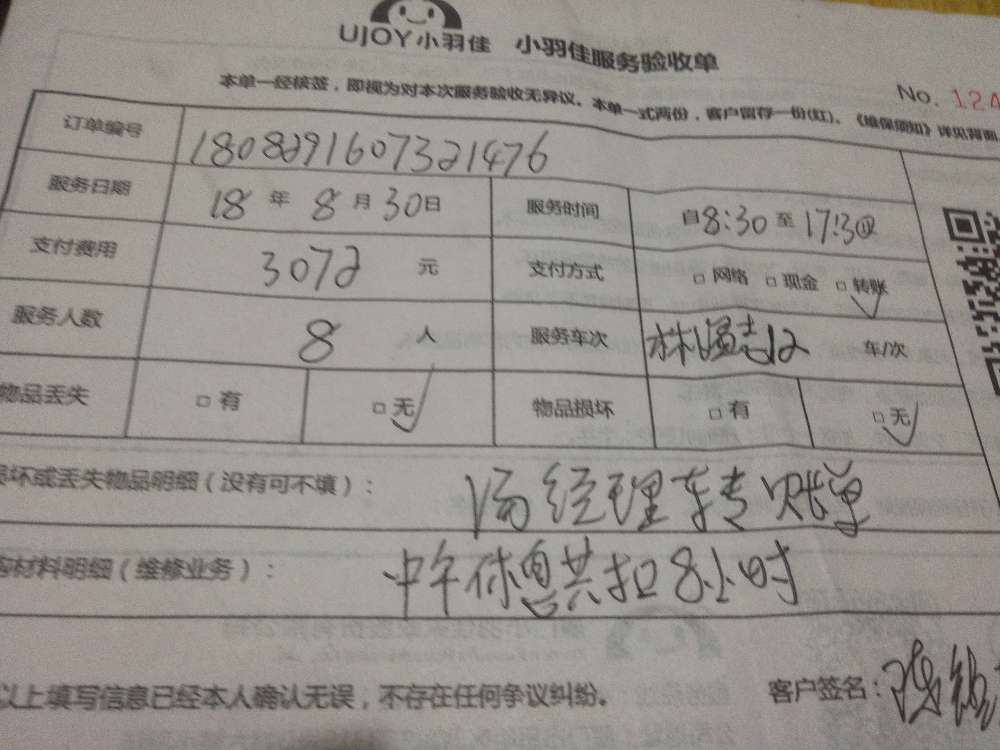 UJOY小羽佳 小羽佳服务验收单
No. 124
本单一经核签，即视为对本次服务验收无异议。本单一式两份，客户留存一份(红)。《维保须知》详见背面
订单编号 1808291607321476
服务日期 18 年 8 月 30 日 服务时间 自8:30 至 17:30
支付费用 3072 元 支付方式 □ 网络 □ 现金 □ 转账
服务人数 8 人 服务车次 车/次
物品丢失 □ 有 □ 无 物品损坏 □ 有 □ 无
损坏或丢失物品明细（没有可不填）： 汤经理转专账单
材料明细（维修业务）： 中午休息共扣8小时
以上填写信息已经本人确认无误，不存在任何争议纠纷。 客户签名：